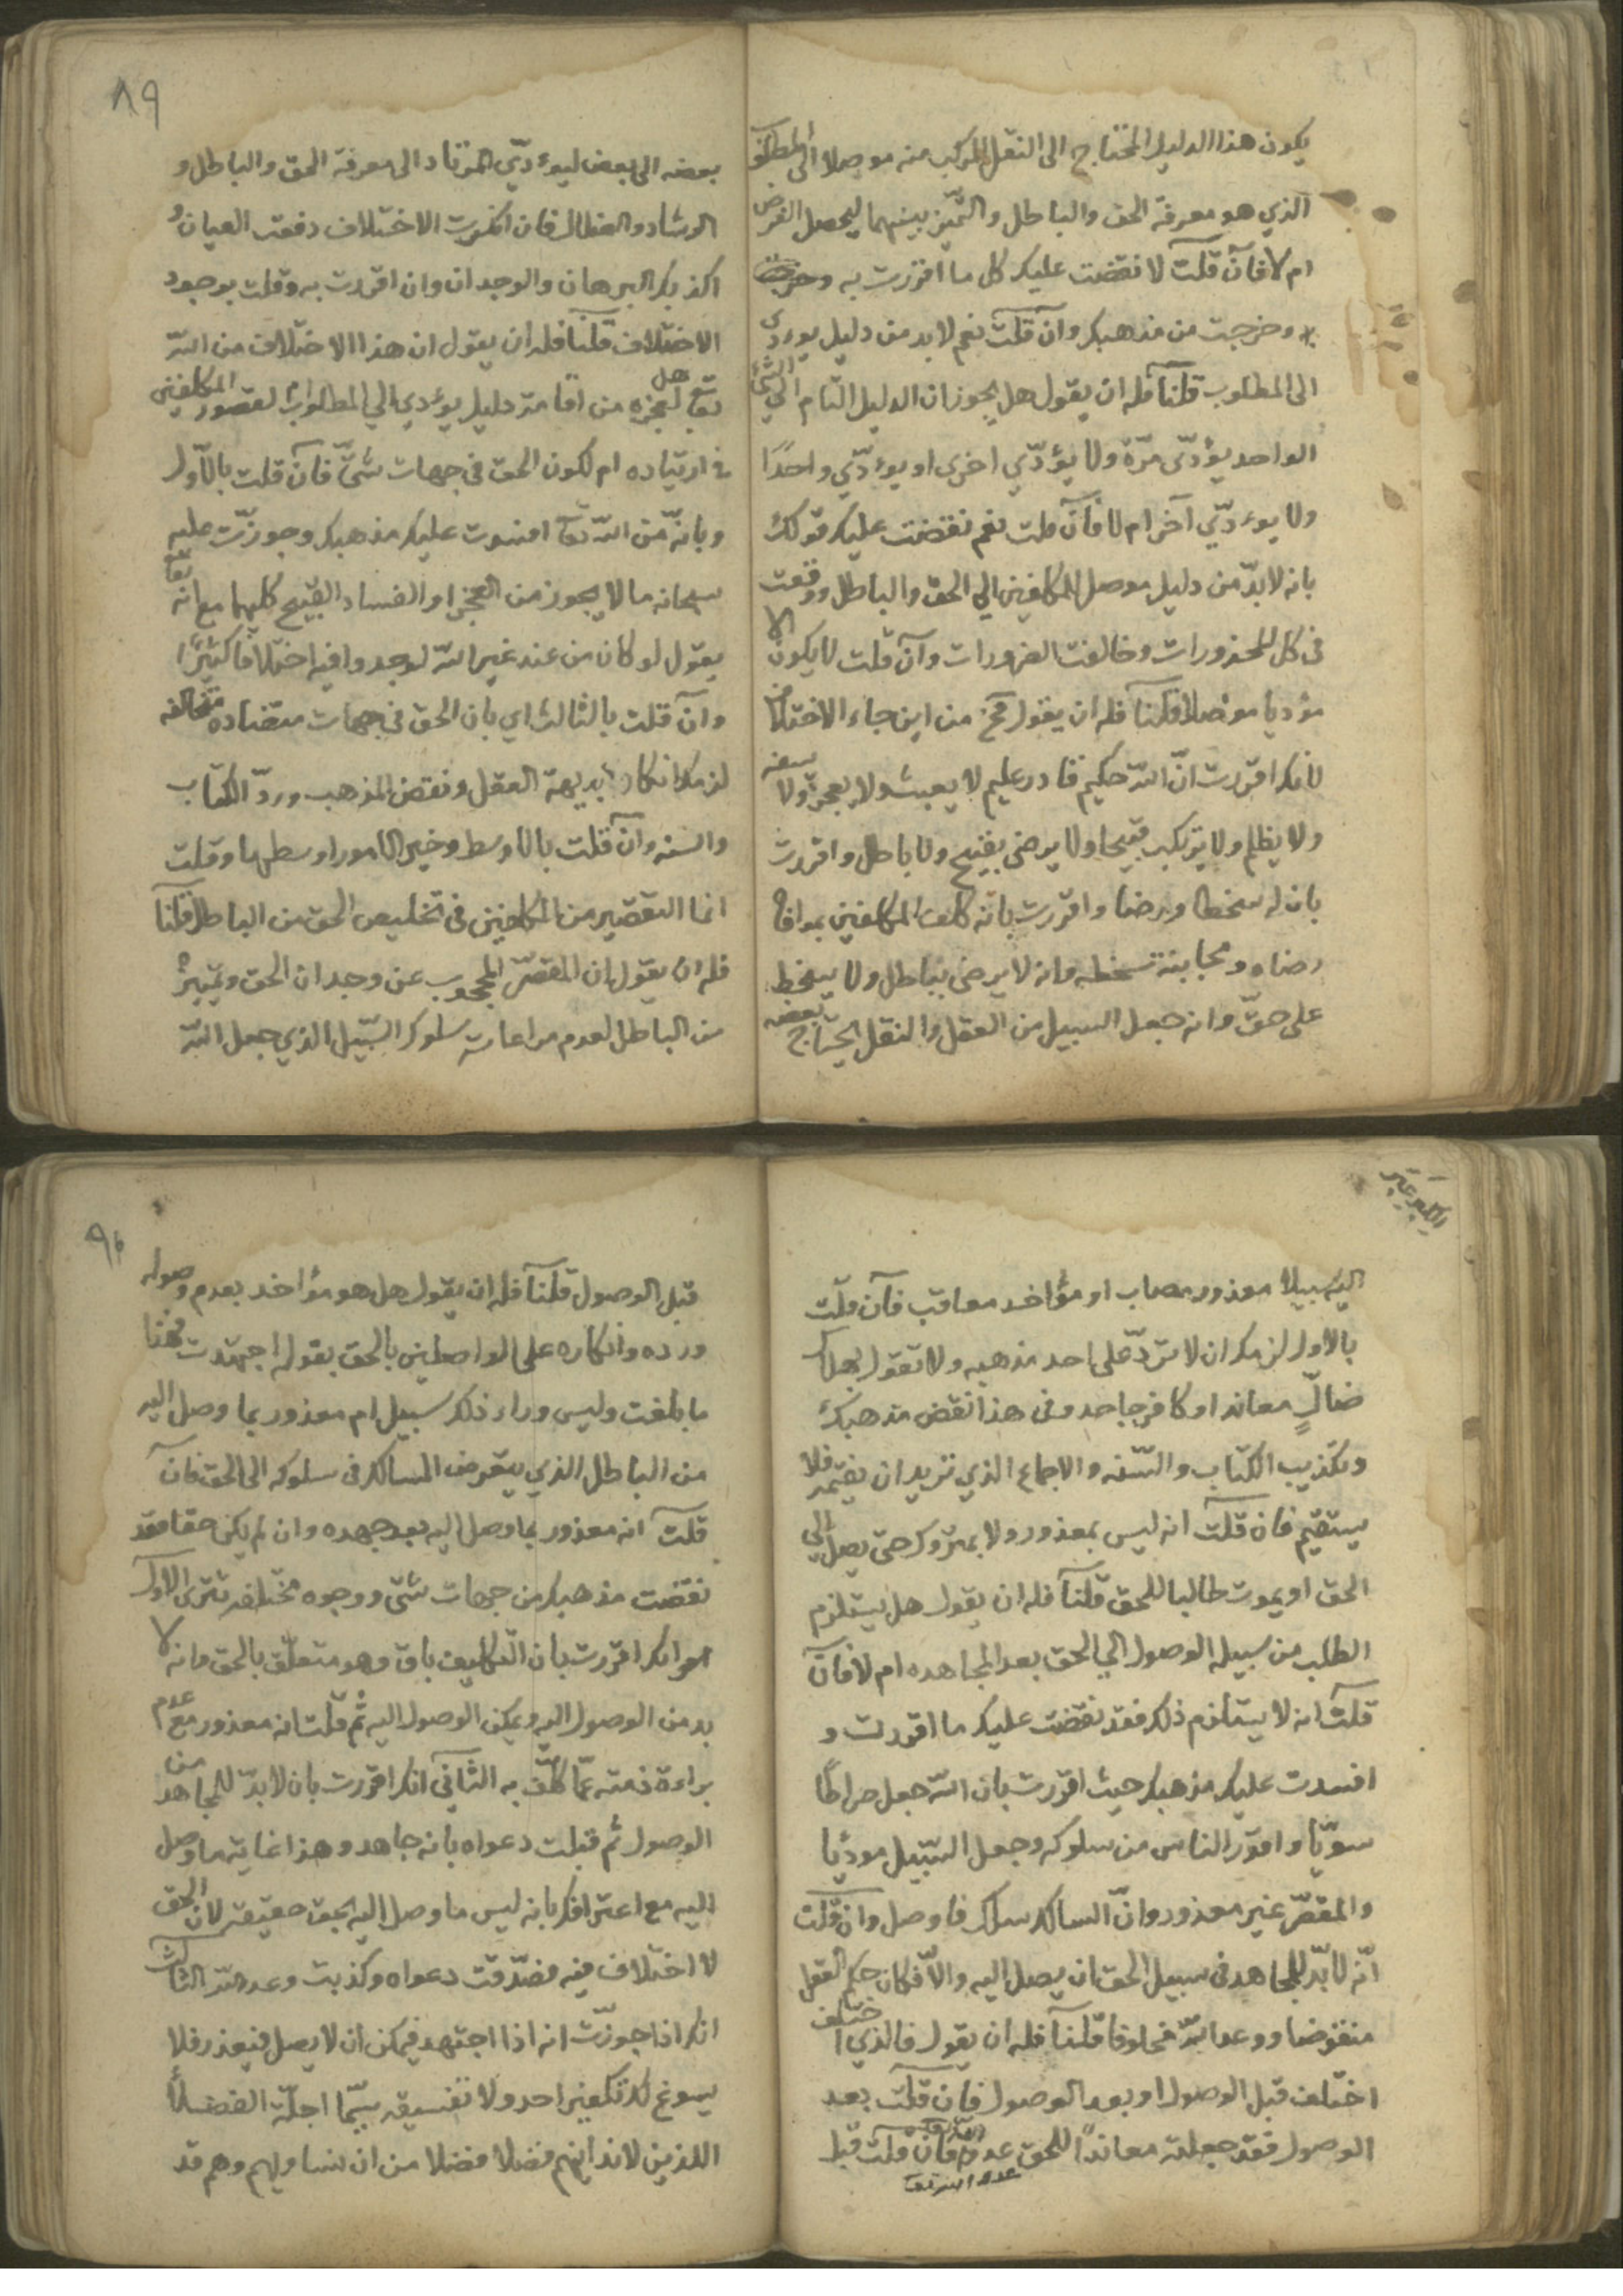 يكون هذا الدليل المحتاج الى النقل المركب منه موصلا الى المطلوب
الذي هو معرفة الحق والباطل والتميّز بينهما ليحصل الغرض
ام لا فان قلت لا نقضت عليك كل ما اقررت به
وخرجت من مذهبك وان قلت نعم لابد من دليل يودي
الى المطلوب قلنا فله ان يقول هل يجوز ان الدليل التام الي الشئ
الواحد يؤدّى مرّة ولا يؤدّي اخرى او يوءدّي واحدًا
ولا يوءدّي آخر ام لا فان قلت نعم نقضت عليك قولك
بانه لابدّ من دليل موصل للمكلفين الي الحق والباطل ووقعت
فى كل المحذورات وخالفت الضرورات وان قلت لا يكون الا
مؤديا موصلا قلنا فله ان يقول فح من اين جاء الاختلاف
لانك اقررت انّ الله حكيم قادر عليم لا يعبث ولا يعجز ولا يسفه
ولا يظلم ولا يرتكب قبيحا ولا يرضى بقبيح ولا باطل واقررت
بان له سخطا ورضا واقررت بانه كلف المكلفين بموافاة
رضاه ومجانبة سخطه وانه لا يرضى بباطل ولا يسخط
على حقّ وانه جعل السبيل من العقل والنقل المحتاج بعضه
٨٩
بعضه الى بعض ليوءدّي المرتاد الى معرفة الحق والباطل و
الرشاد والضلال فان انكرت الاختلاف دفعت العيان و
اكذبك البرهان والوجدان وان اقررت به وقلت بوجود
الاختلاف قلنا فله ان يقول ان هذا الاختلاف من الله
تع هل لعجزه من اقامة دليل يؤدي الي المطلوب ام لقصور المكلفين
فى ارتياده ام لكون الحق في جهات شتّى فان قلت بالاوّل
وبانّه من الله تعا افسدت عليك مذهبك وجوزّت عليه
سبحانه ما لا يجوز من العجز او الفساد القبيح كليهما مع انه تعا
يقول لو كان من عند غير الله لوجدوا فيه اختلافا كثيرًا
وان قلت بالثالث اي بان الحق في جهات متضاده متخالفه
لزمك انكار بديهة العقل ونقض المذهب وردّ الكتاب
والسنه وان قلت بالاوسط وخير الامور اوسطها وقلت
انما التقصير من المكلفين فى تخليص الحق من الباطل قلنا
فله ان يقول ان المقصّر المحجوب عن وجدان الحق وتميّزه
من الباطل لعدم مراعات سلوك السّبيل الذي جعل الله
اليه سبيلا معذور مصاب او مؤاخد معاقب فان قلت
بالاول لزمك ان لا تردّ على احد مذهبه ولا تقول بهلاك
ضالٍّ معاند او كافر جاحد وفى هذا نقض مذهبك
وتكذيب الكتاب والسّنه والاجماع الذي تريد ان تقيمه فلا
يستقيم فان قلت انه ليس بمعذور ولا بمتروك حتى يصل الي
الحق او يموت طالبا للحق قلنا فله ان يقول هل يستلزم
الطلب من سبيله الوصول الي الحق بعد المجاهده ام لا فان
قلت انه لا يستلزم ذلك فقد نقضت عليك ما اقررت و
افسدت عليك مذهبك حيث اقررت بان الله جعل صراطًا
سويّا وامر الناس من سلوكه وجعل السّبيل موديا
والمقصّر غير معذور وانّ السالك سلك فاوصل وان قلت
انّه لابدّ للمجاهد فى سبيل الحق ان يصل اليه والّا فكان حكم العقل
منقوضا ووعد الله مخلوفا قلنا فله ان يقول فالذي اختلف
اختلف قبل الوصول او بعد الوصول فان قلت بعد
الوصول فقد جعلته معاندًا للحق عدو الله فان قلت قبل
٩٠
قبل الوصول قلنا فله ان يقول هل هو مؤاخد بعدم وصوله
ورده وانكاره على الواصلين بالحق بقوله اجتهدت فهنا
ما بلغت وليس وراء ذلك سبيل ام معذور بما وصل اليه
من الباطل الذي يتعرض المسالك فى سلوكه الى الحق فان
قلت انه معذور بما وصل اليه بعد جهده وان لم يكن حقا فقد
نقضت مذهبك من جهات شتى ووجوه مختلفه تترى الاول
هو انك اقررت بان التكليف باق وهو متعلّق بالحق وانه لا
بد من الوصول اليه ويمكن الوصول اليه ثم قلت انه معذور مع عدم
براءة ذمته عمّا كلّف به الثانى انك اقررت بان لابدّ للمجاهد من
الوصول ثم قبلت دعواه بانه جاهد وهذا غاية ما وصل
اليه مع اعترافك بانه ليس ما وصل اليه بحق حقيقة لان الحق
لا اختلاف فيه فصدّقت دعواه وكذبت وعد الله الثالث
انك اذا جوزّت انه اذا اجتهد فيمكن ان لا يصل فيعذر فلا
يسوغ لك تكفير احد ولا تفسيقه سيّما اجلّة الفضلاء
اللذين لاندانيهم فضلا فضلا من ان نساويهم وهم قد